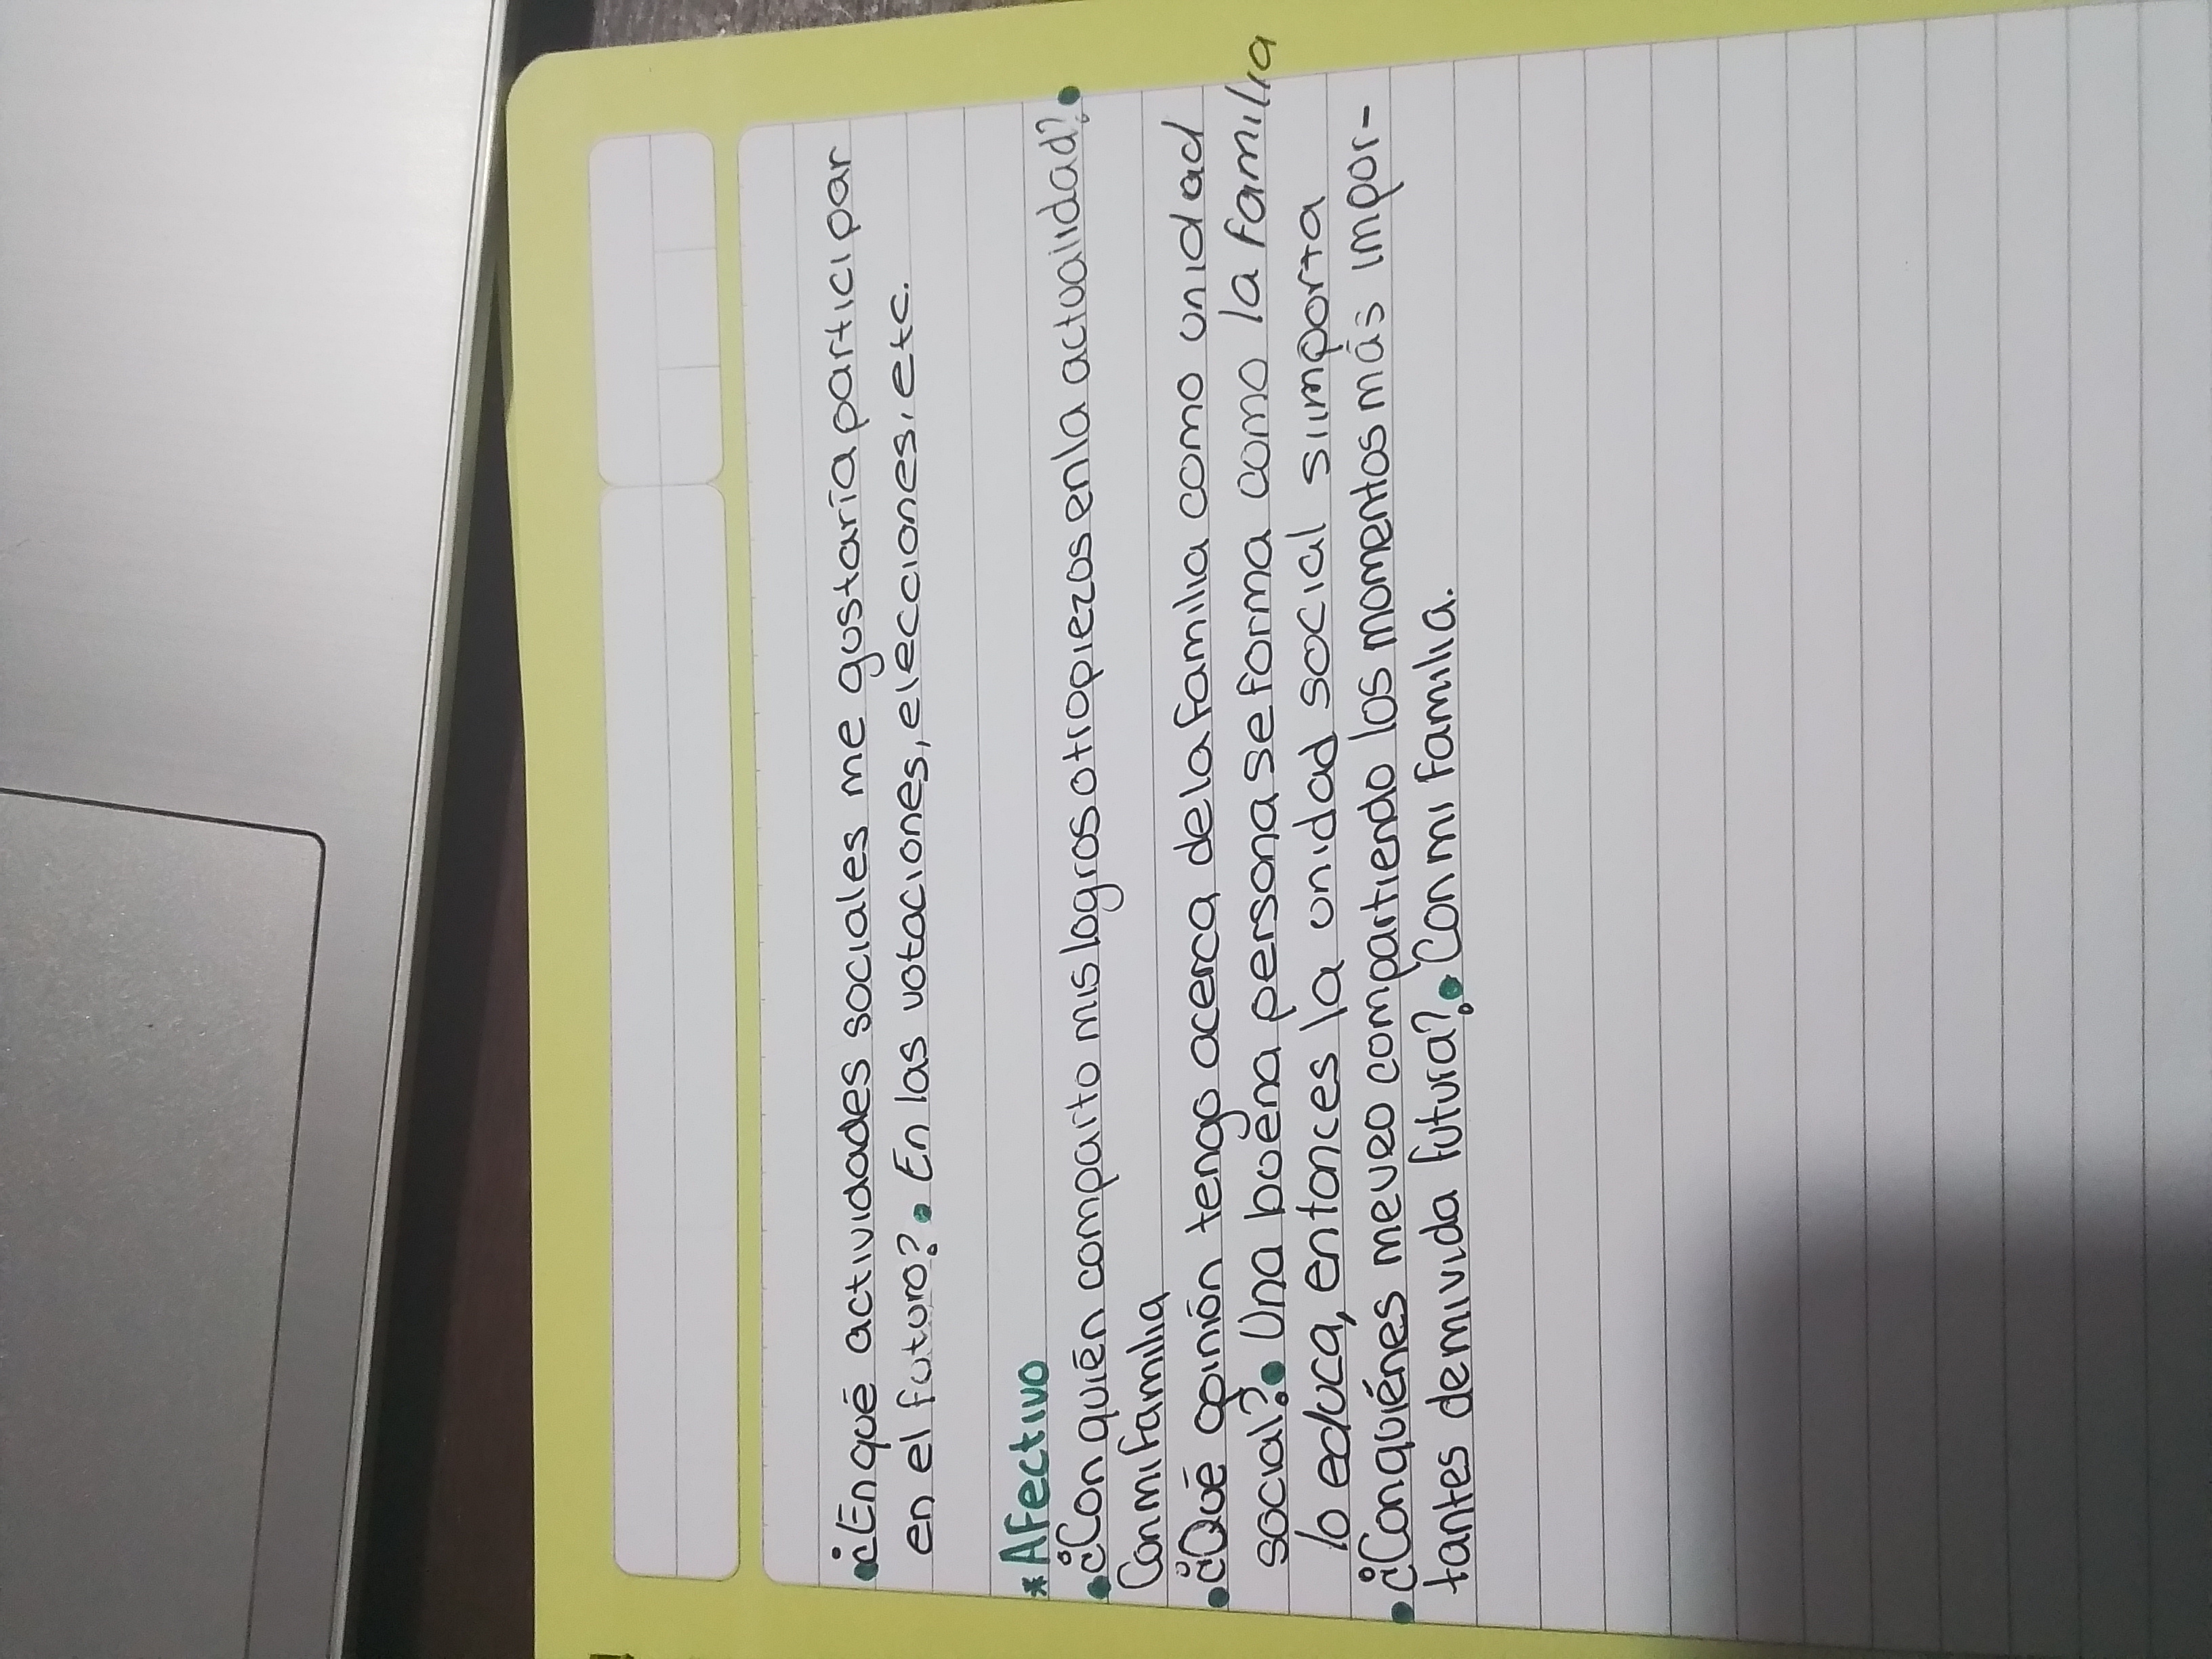 • ¿En qué actividades sociales me gustaría participar
en el futuro? • En las votaciones, elecciones, etc.
* Afectivo
• ¿Con quién comparto mis logros o tropiezos en la actualidad? •
Con mi familia
• ¿Qué opinión tengo acerca de la familia como unidad
social? • Una buena persona se forma como la familia
lo educa, entonces la unidad social si importa
• ¿Con quiénes me veo compartiendo los momentos más impor-
tantes de mi vida futura? • Con mi familia.